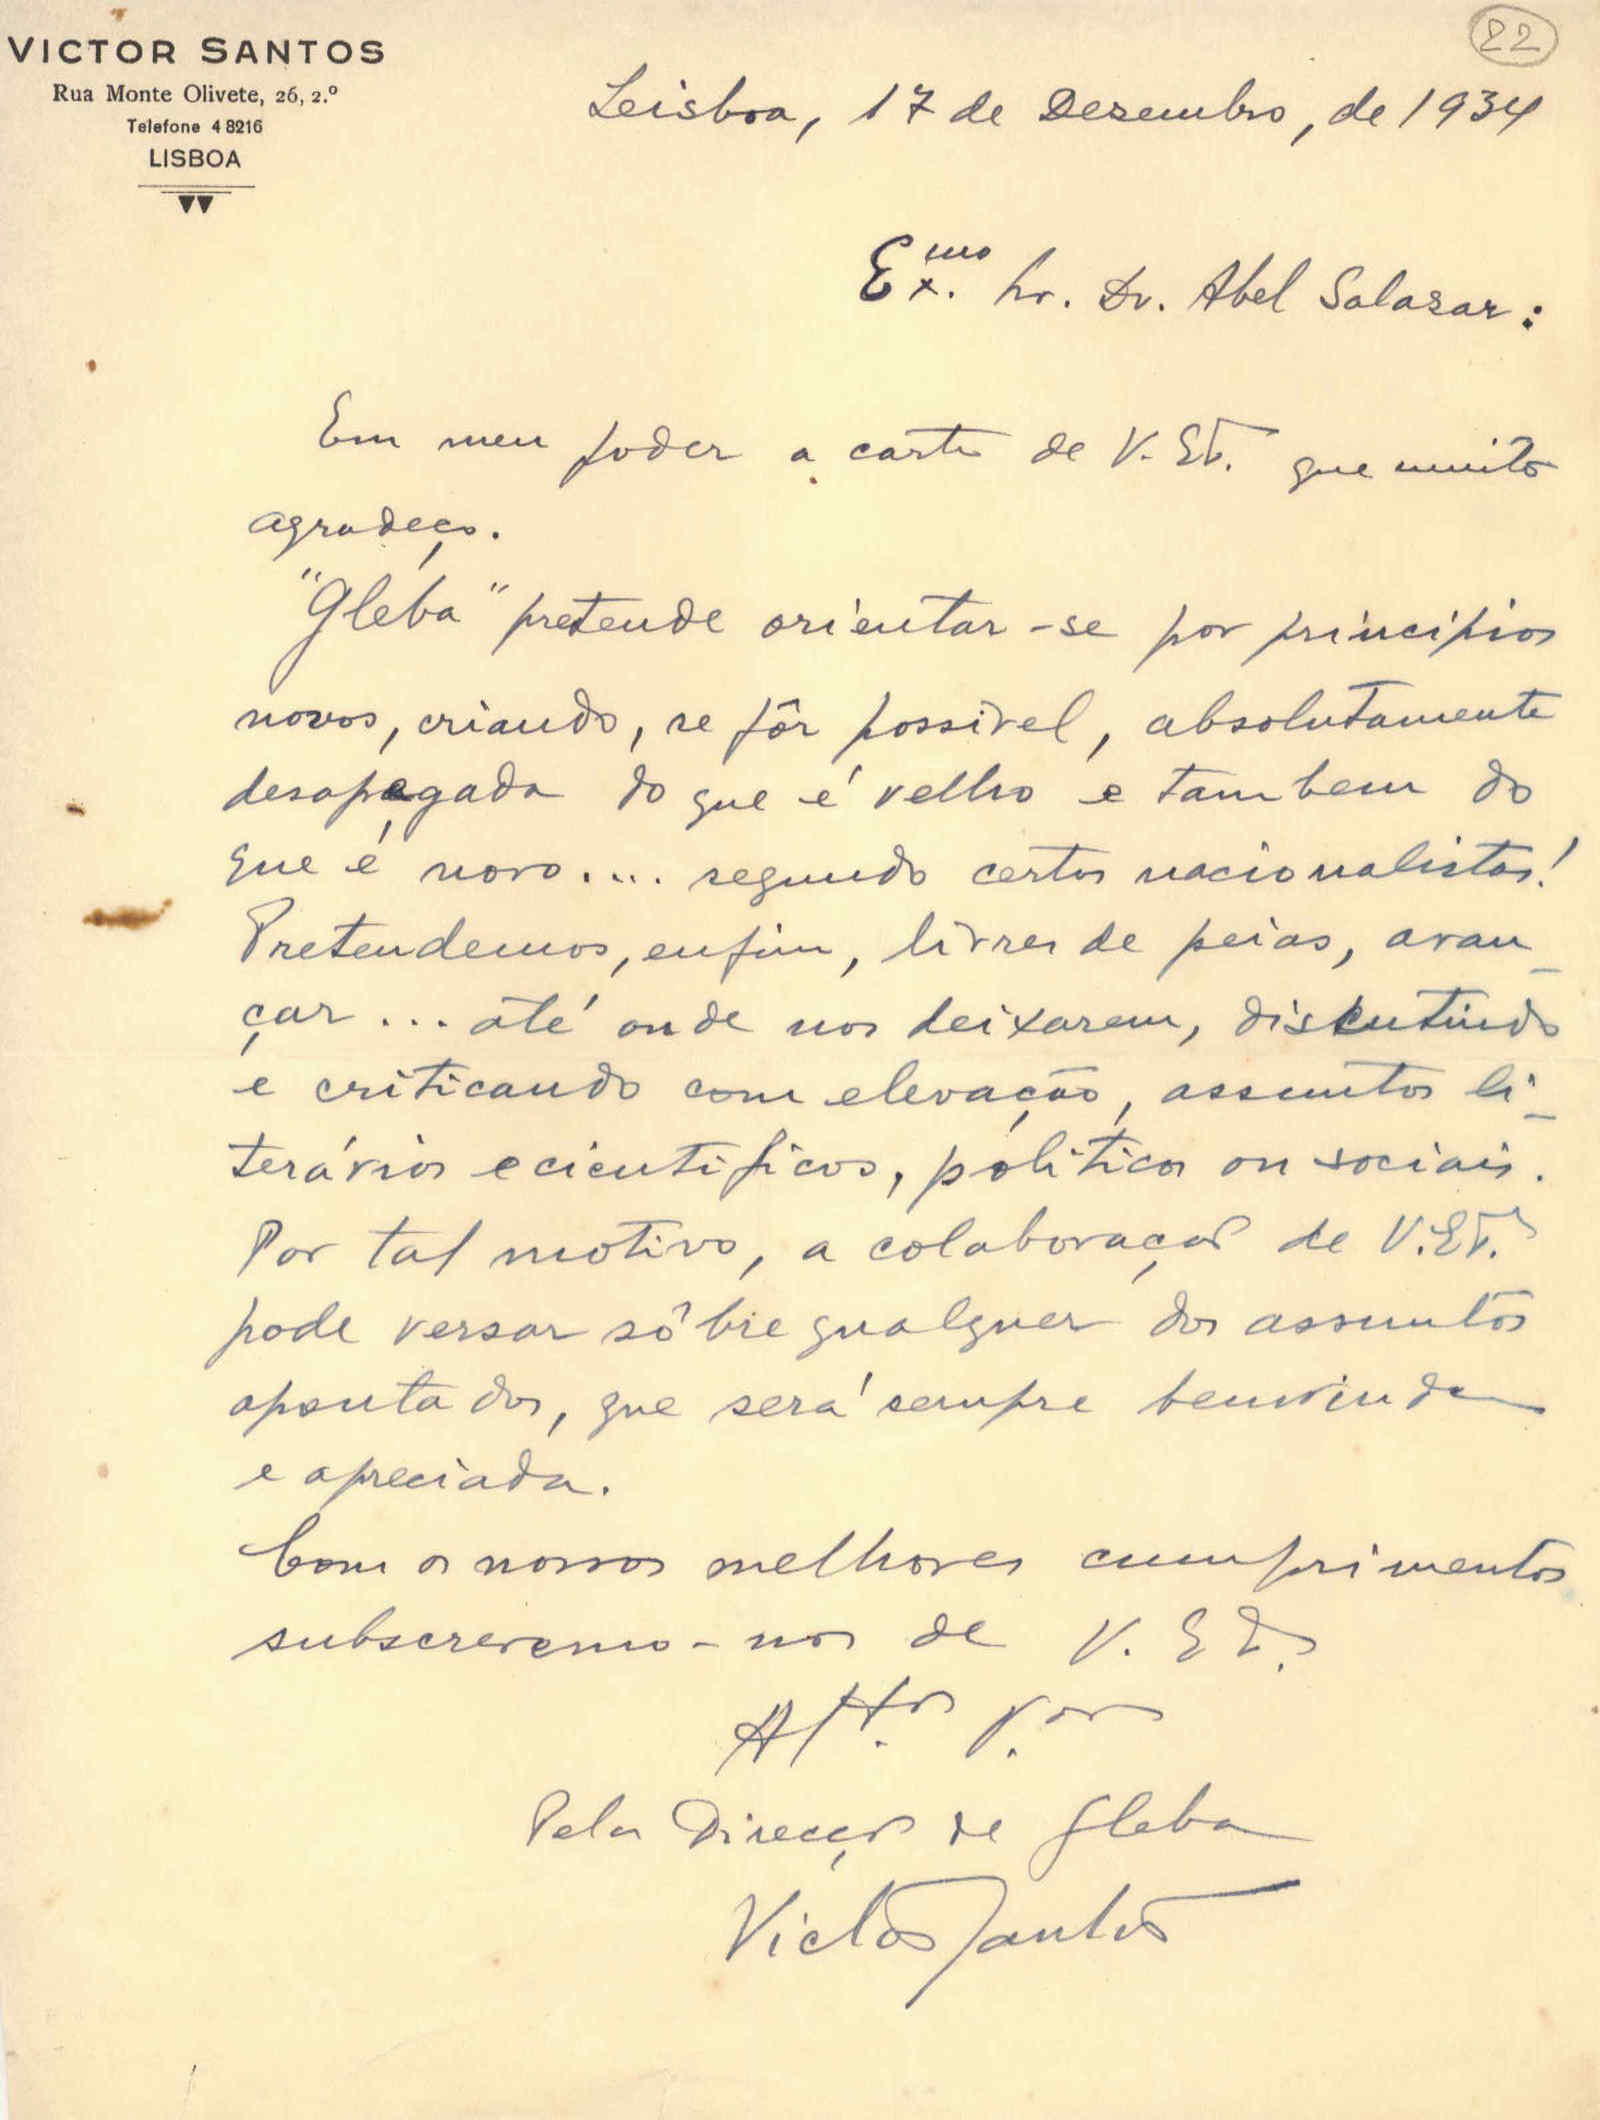 VICTOR SANTOS
Rua Monte Olivete, 26, 2.º
Telefone 4 8216
LISBOA
22
Lisboa, 17 de Dezembro, de 1934
Exmo. Sr. Dr. Abel Salazar:
Em meu poder a carta de V. Ex. que muito
agradeço.
"Gléba" pretende orientar-se por principios
novos, criando, se fôr possivel, absolutamente
desapegada do que é velho e tambem do
que é novo.... segundo certos nacionalistas!
Pretendemos, enfim, livres de peias, avan-
çar... até onde nos deixarem, discutindo
e criticando com elevação, assuntos li-
terários e cientificos, politicos ou sociais.
Por tal motivo, a colaboração de V. Ex.
pode versar sôbre qualquer dos assuntos
apontados, que será sempre benvinda
e apreciada.
Com os nossos melhores cumprimentos
subscrevemo-nos de V. Ex.
Attos. Vors
Pela Direcção de Gleba
Victor Santos